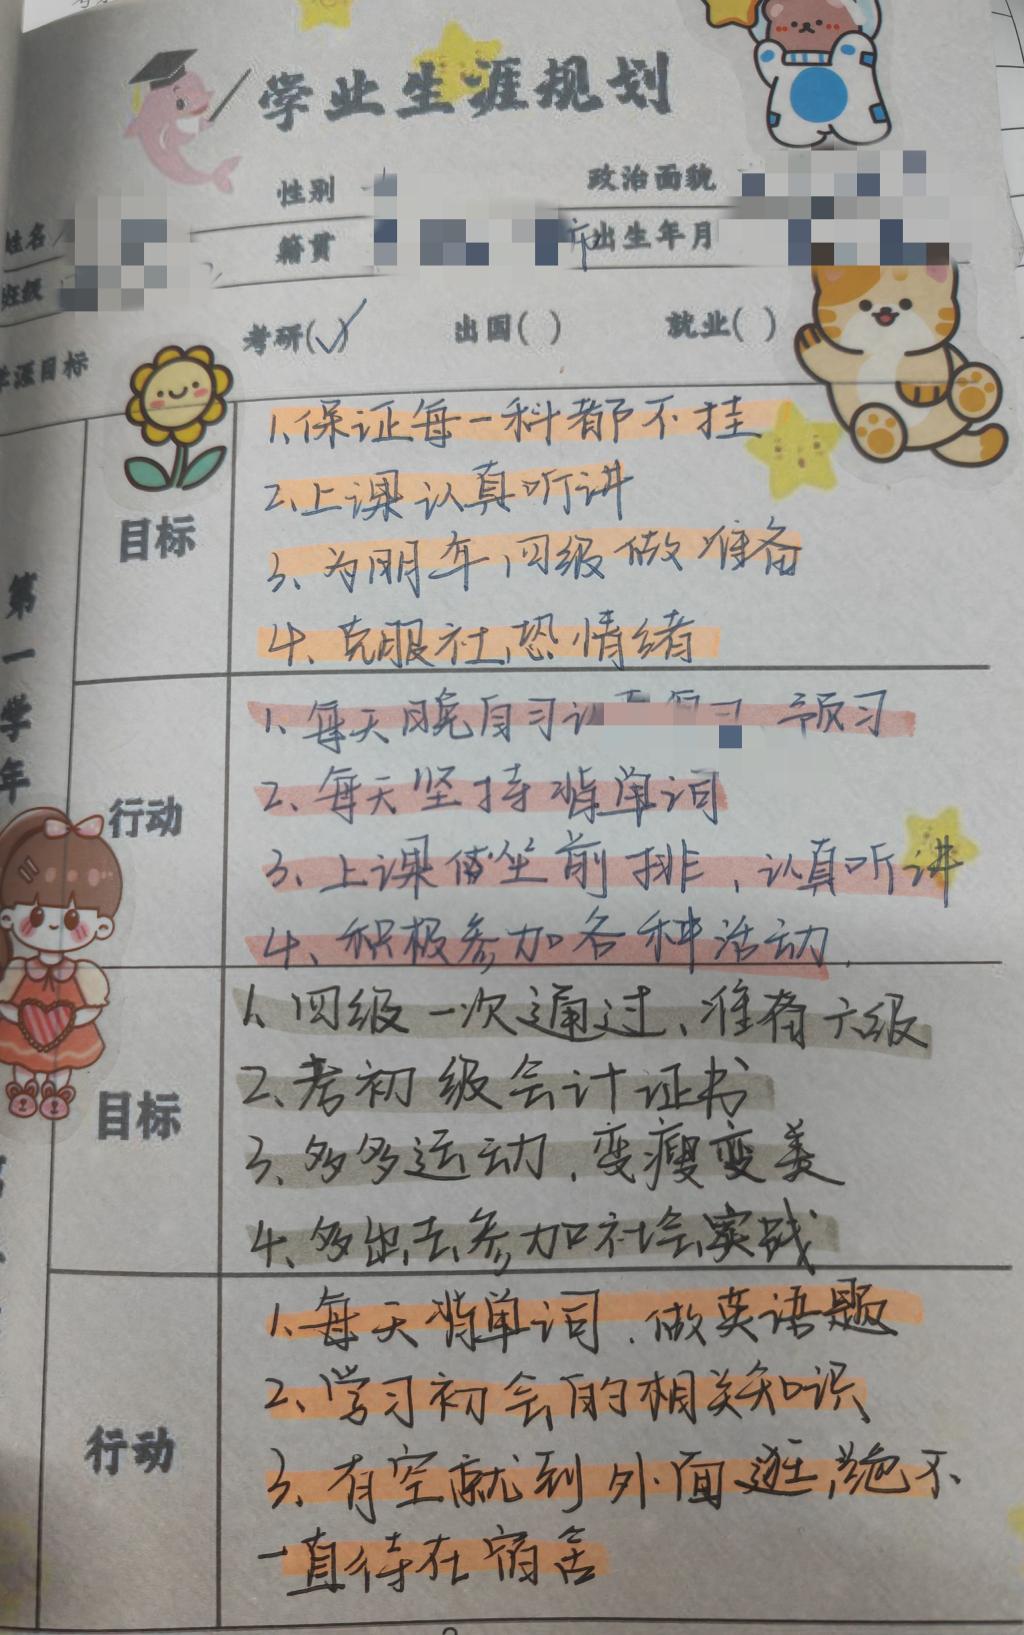 学业生涯规划
性别
政治面貌
姓名
籍贯
市出生年月
班级
考研(✓)
出国( )
就业( )
学涯目标
第一学年
目标
1、保证每一科都不挂
2、上课认真听讲
3、为明年四级做准备
4、克服社恐情绪
行动
1、每天晚自习认真复习 预习
2、每天坚持背单词
3、上课做坐前排,认真听讲
4、积极参加各种活动
目标
1、四级一次通过、准备六级
2、考初级会计证书
3、多多运动,变瘦变美
4、多出去参加社会实践
行动
1、每天背单词,做英语题
2、学习初会的相关知识
3、有空就到外面逛,绝不
一直待在宿舍